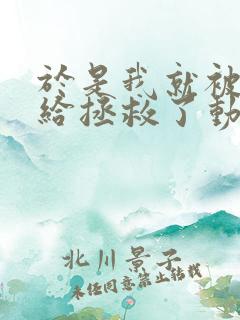 於是我就被
給拯救了動
北川景子
未经同意禁止转载